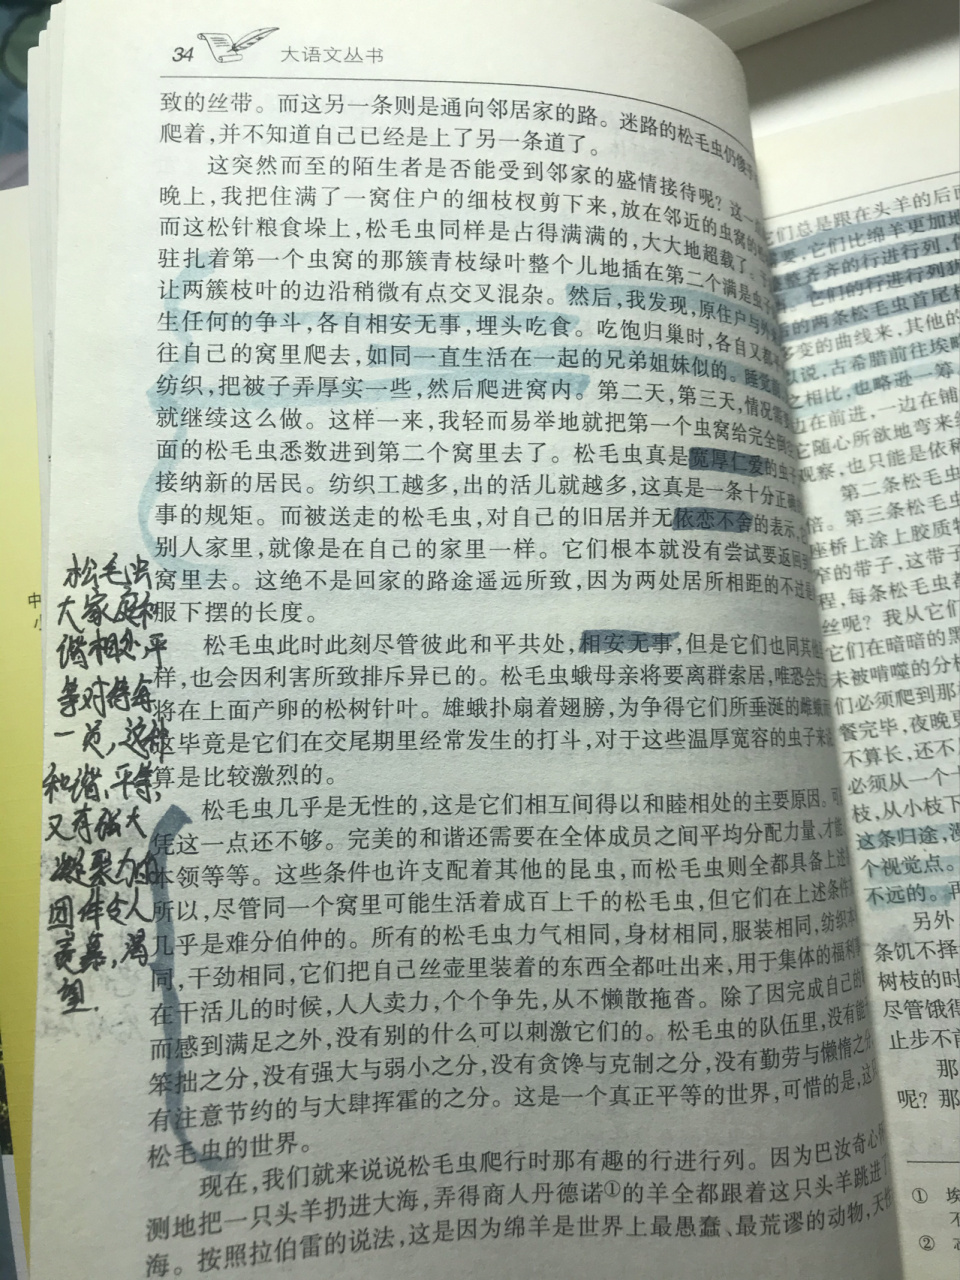 34
大语文丛书
致的丝带。而这另一条则是通向邻居家的路。迷路的松毛虫仍
爬着,并不知道自己已经是上了另一条道了。
这突然而至的陌生者是否能受到邻家的盛情接待呢?这一
晚上,我把住满了一窝住户的细枝杈剪下来,放在邻近的虫窝的
而这松针粮食垛上,松毛虫同样是占得满满的,大大地超载了。
驻扎着第一个虫窝的那簇青枝绿叶整个儿地插在第二个满是虫子
让两簇枝叶的边沿稍微有点交叉混杂。然后,我发现,原住户与
生任何的争斗,各自相安无事,埋头吃食。吃饱归巢时,各自又都
往自己的窝里爬去,如同一直生活在一起的兄弟姐妹似的。睡觉
纺织,把被子弄厚实一些,然后爬进窝内。第二天,第三天,情况
就继续这么做。这样一来,我轻而易举地就把第一个虫窝给完全
面的松毛虫悉数进到第二个窝里去了。松毛虫真是宽厚仁爱的虫子
接纳新的居民。纺织工越多,出的活儿就越多,这真是一条十分正确
事的规矩。而被送走的松毛虫,对自己的旧居并无依恋不舍的表示,
别人家里,就像是在自己的家里一样。它们根本就没有尝试要返回
窝里去。这绝不是回家的路途遥远所致,因为两处居所相距的不过是
服下摆的长度。
松毛虫此时此刻尽管彼此和平共处,相安无事,但是它们也同其他
样,也会因利害所致排斥异己的。松毛虫蛾母亲将要离群索居,唯恐会
将在上面产卵的松树针叶。雄蛾扑扇着翅膀,为争得它们所垂涎的雌蛾
这毕竟是它们在交尾期里经常发生的打斗,对于这些温厚宽容的虫子来
算是比较激烈的。
松毛虫几乎是无性的,这是它们相互间得以和睦相处的主要原因。
凭这一点还不够。完美的和谐还需要在全体成员之间平均分配力量、才能、
本领等等。这些条件也许支配着其他的昆虫,而松毛虫则全都具备上述
所以,尽管同一个窝里可能生活着成百上千的松毛虫,但它们在上述条件
几乎是难分伯仲的。所有的松毛虫力气相同,身材相同,服装相同,纺织
同,干劲相同,它们把自己丝壶里装着的东西全都吐出来,用于集体的福利
在干活儿的时候,人人卖力,个个争先,从不懒散拖沓。除了因完成自己的
而感到满足之外,没有别的什么可以刺激它们的。松毛虫的队伍里,没有能
笨拙之分,没有强大与弱小之分,没有贪馋与克制之分,没有勤劳与懒惰之分
有注意节约的与大肆挥霍的之分。这是一个真正平等的世界,可惜的是,这
松毛虫的世界。
现在,我们就来说说松毛虫爬行时那有趣的行进行列。因为巴汝奇心
测地把一只头羊扔进大海,弄得商人丹德诺①的羊全都跟着这只头羊跳进
海。按照拉伯雷的说法,这是因为绵羊是世界上最愚蠢、最荒谬的动物,天
松毛虫
大家庭和
谐相处,平
等对待每
一员,这种
和谐、平等,
又有强大
凝聚力的
团体令人
羡慕,渴
望.
们总是跟在头羊的后
要,它们比绵羊更加
整齐齐的行进行列,
。它们的行进行列
的两条松毛虫首尾
多变的曲线来,其他的
说,古希腊前往埃
之相比,也略逊一筹
边在前进,一边在铺
它随心所欲地弯来
观察,也只能是依
第二条松毛虫
倍。第三条松毛虫
座桥上涂上胶质
窄的带子,这带子
程,每条松毛虫都
丝呢?我从它们
它们在暗暗的黑
未被啃噬的分
们必须爬到那
餐完毕,夜晚更
不算长,还不
必须从一个
枝,从小枝下
这条归途,漫
个视觉点。
不远的。再
另外
条饥不择
树枝的时
尽管饿得
止步不前
那
呢?那
① 埃
②